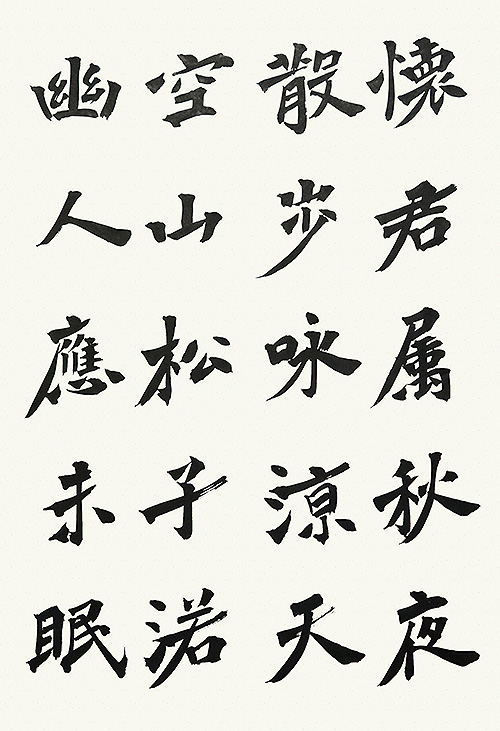 懐君属秋夜
散歩咏涼天
空山松子落
幽人應未眠